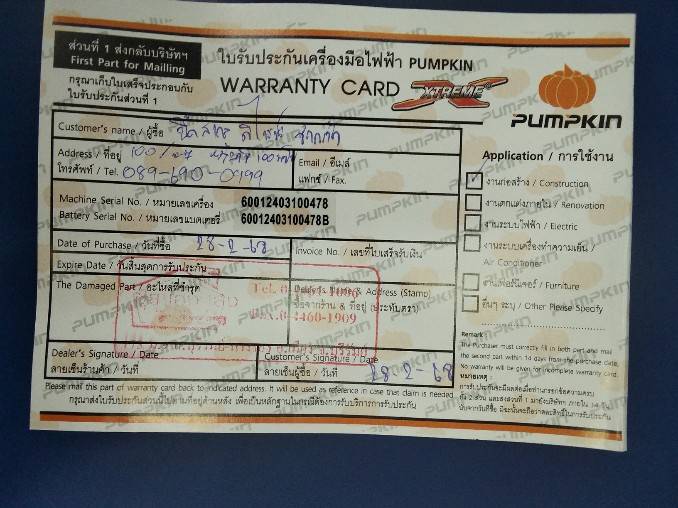 ส่วนที่ 1 ส่งกลับบริษัทฯ
First Part for Mailling
กรุณาเก็บใบเสร็จประกอบกับ
ใบรับประกันส่วนที่ 1
ใบรับประกันเครื่องมือไฟฟ้า PUMPKIN
WARRANTY CARD XTREME
PUMPKIN
Customer's name / ผู้ซื้อ
Address / ที่อยู่ 100/
โทรศัพท์ / Tel. 089-690-0999
Email / อีเมล์
แฟกซ์ / Fax.
Machine Serial No. / หมายเลขเครื่อง 60012403100478
Battery Serial No. / หมายเลขแบตเตอรี่ 60012403100478B
Date of Purchase / วันที่ซื้อ 28-2-68
Invoice No. / เลขที่ใบเสร็จรับเงิน
Expire Date / วันสิ้นสุดการรับประกัน
The Damaged Part / อะไหล่ที่ชำรุด
Dealer's Name & Address (Stamp)
ชื่อจากร้าน & ที่อยู่ (ประทับตรา)
Dealer's Signature / Date
ลายเซ็นร้านค้า / วันที่
Customer's Signature / Date
ลายเซ็นผู้ซื้อ / วันที่ 28-2-68
Please mail this part of warranty card back to indicated address. It will be used as reference in case that claim is needed
กรุณาส่งใบรับประกันส่วนนี้ไปตามที่อยู่ด้านหลัง เพื่อเป็นหลักฐานในกรณีต้องการรับบริการการรับประกัน
Application / การใช้งาน
งานก่อสร้าง / Construction
งานตกแต่งภายใน / Renovation
งานระบบไฟฟ้า / Electric
งานระบบเครื่องทำความเย็น /
Air Conditioner
งานเฟอร์นิเจอร์ / Furniture
อื่นๆ ระบุ / Other Please Specify
Remark :
The Purchaser must correctly fill in both part and mail
the second part within 14 days from the purchase date.
No warranty will be given for incomplete warranty card.
หมายเหตุ :